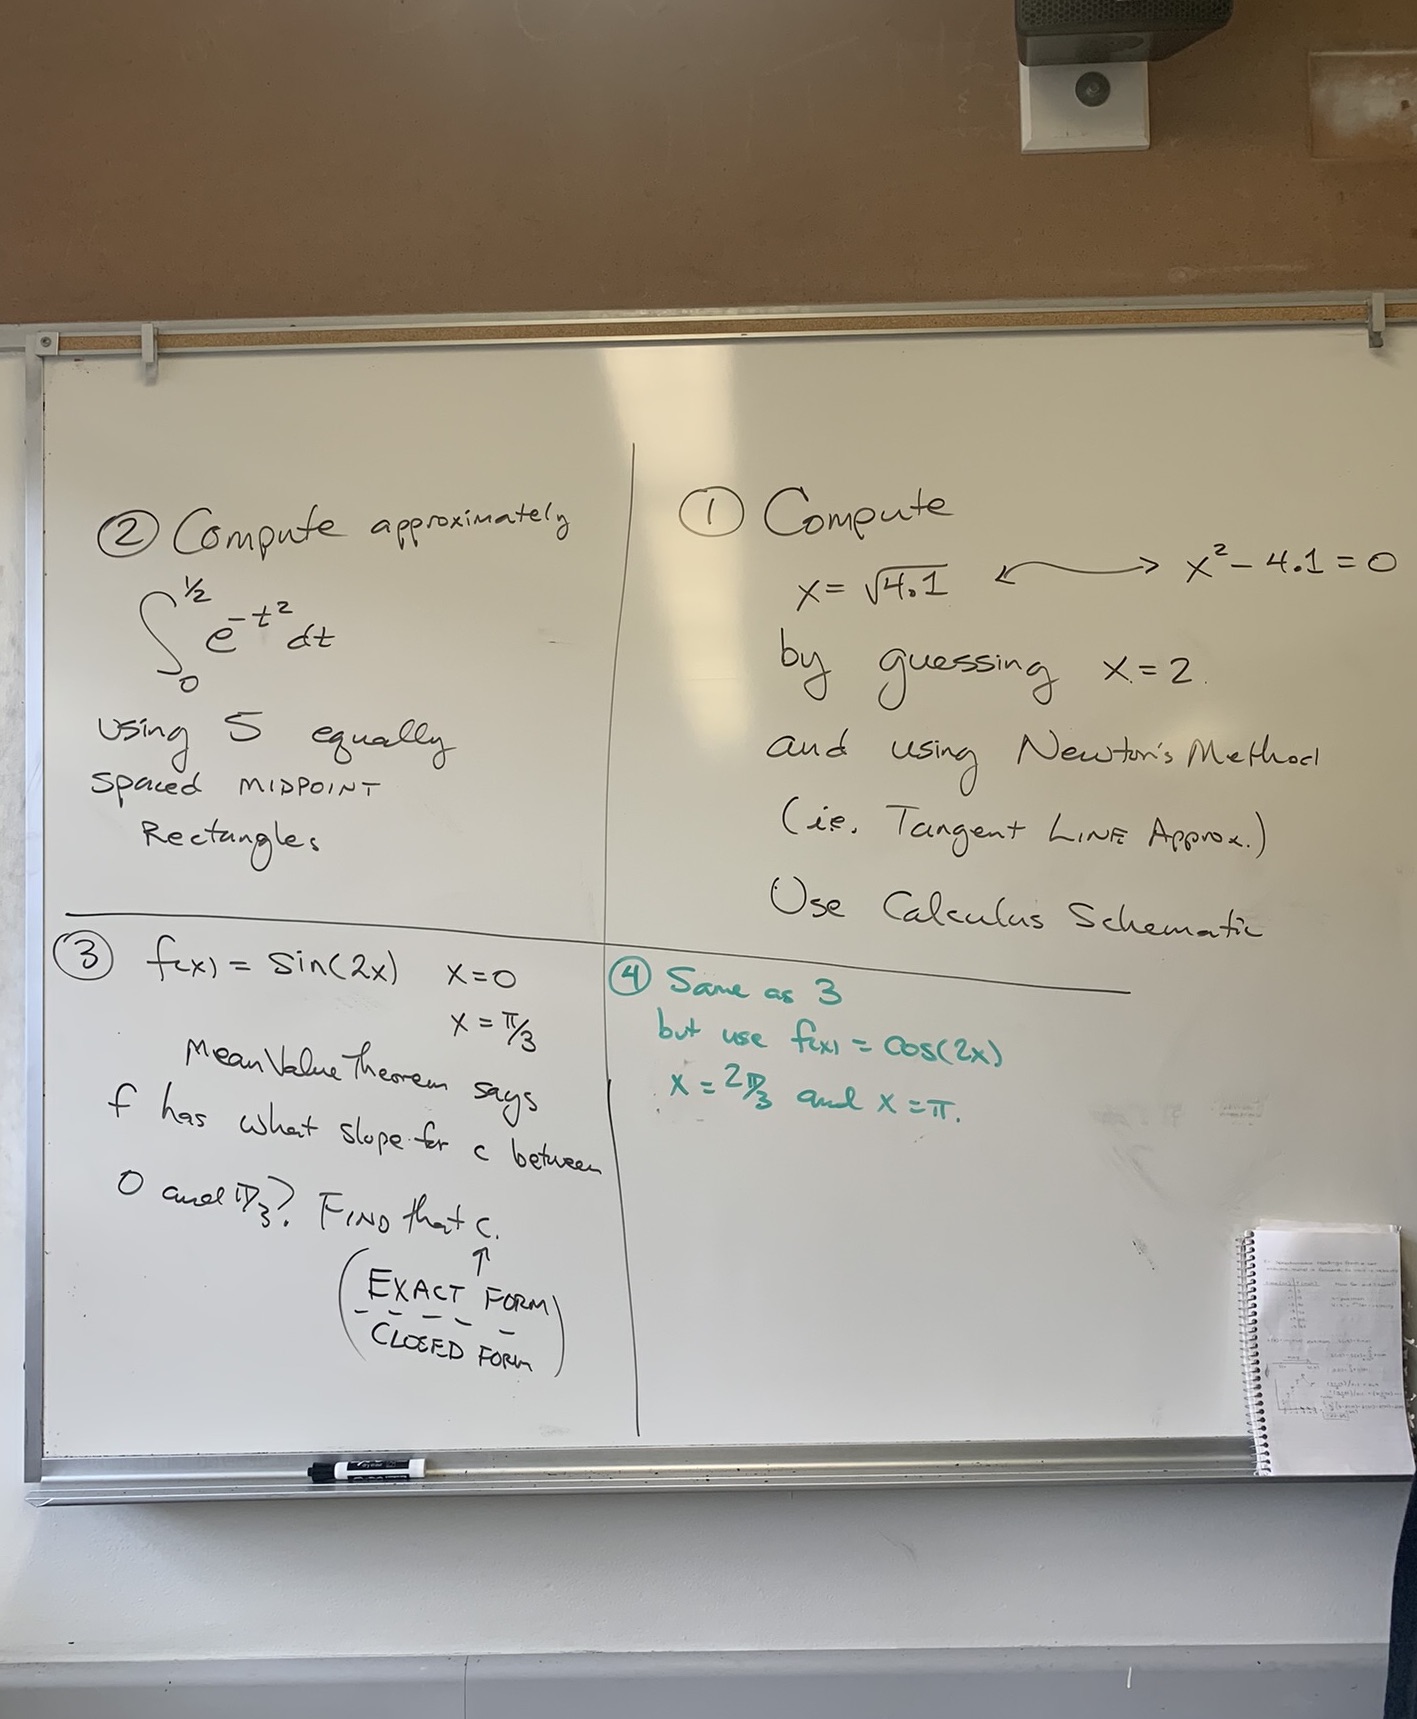 ② Compute approximately
∫₀^½ e^-t² dt
using 5 equally
spaced MIDPOINT
Rectangles
① Compute
x = √4.1 ⟷ x² - 4.1 = 0
by guessing x = 2.
and using Newton's Method
(i.e. Tangent LINE Approx.)
Use Calculus Schematic
③ f(x) = sin(2x) x = 0
x = π/3
Mean Value Theorem says
f has what slope for c between
0 and π/3? FIND that c.
↑
(EXACT FORM
CLOSED FORM)
④ Same as 3
but use f(x) = cos(2x)
x = 2π/3 and x = π.